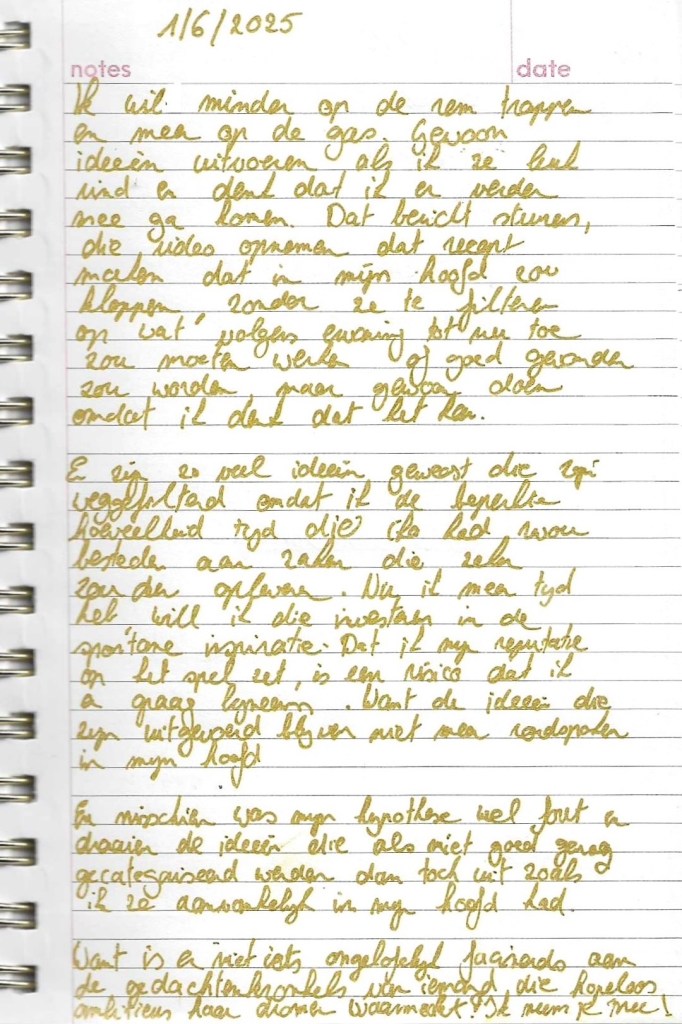 1/6/2025
notes
date
Ik wil minder op de rem trappen
en meer op de gas. Gewoon
ideeën uitvoeren als ik ze leuk
vind en denk dat ik er verder
mee ga komen. Dat bericht sturen,
die video opnemen dat recept
maken dat in mijn hoofd zou
kloppen zonder ze te filteren
op wat volgens ervaring tot nu toe
zou moeten werken of goed gevonden
zou worden, maar gewoon doen
omdat ik denk dat het kan.
Er zijn zo veel ideeën geweest die zijn
weggefilterd omdat ik de beperkte
hoeveelheid tijd die ik had wou
besteden aan zaken die zeker
zouden opleveren. Nu ik meer tijd
heb will ik die investeren in de
spontane inspiratie. Dat ik mijn reputatie
op het spel zet, is een risico dat ik
er graag bijneem. Want de ideeën die
zijn uitgevoerd blijven niet meer rondspoken
in mijn hoofd
En misschien was mijn hypothese wel fout en
draaien de ideeën die als niet goed genoeg
gecategoriseerd werden dan toch uit zoals
ik ze aanvankelijk in mijn hoofd had.
Want is er niet iets ongelofelijk fascinerends aan
de gedachtenkronkels van iemand die hopeloos
ambitieus haar dromen waarmaakt? Ik neem je mee!